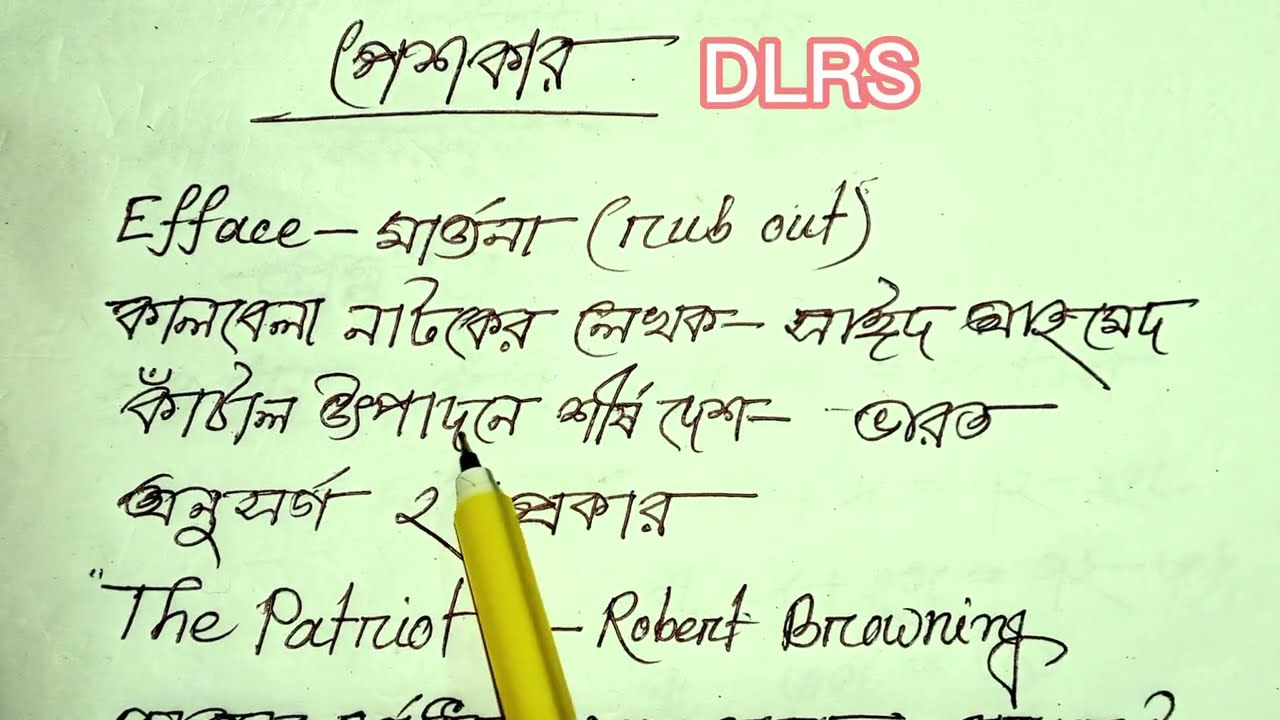 পেশকার DLRS
Efface - মার্জনা (rub out)
কালবেলা নাটকের লেখক - সাঈদ আহমেদ
কাঁঠাল উৎপাদনে শীর্ষ দেশ - ভারত
অনুসর্গ ২ প্রকার
"The Patriot - Robert Browning